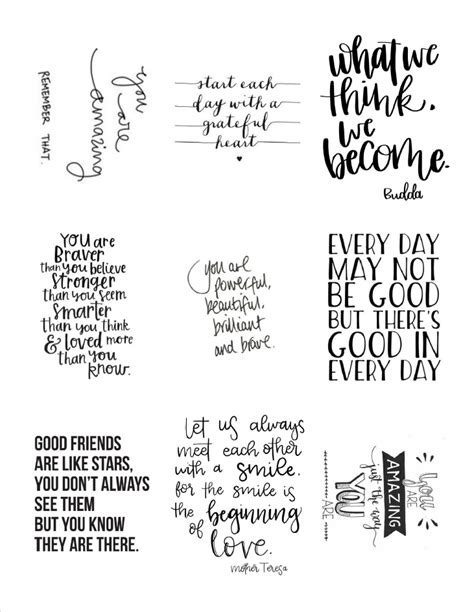 you are
amazing
REMEMBER THAT.
start each
day with a
grateful
heart
what we
think.
we
become.
Budda
YOU are
BRaver
than you believe
Stronger
than you seem
Smarter
than you think
& loved more
than you
know.
you are
powerful,
beautiful,
brilliant
and brave.
EVERY DAY
MAY NOT
BE GOOD
BUT THERE'S
GOOD IN
EVERY DAY
GOOD FRIENDS
ARE LIKE STARS,
YOU DON'T ALWAYS
SEE THEM
BUT YOU KNOW
THEY ARE THERE.
Let us always
meet each other
with a smile.
for the smile is
the beginning
of love.
mother Teresa
you
ARE
AMAZING
just the way
YOU
ARE